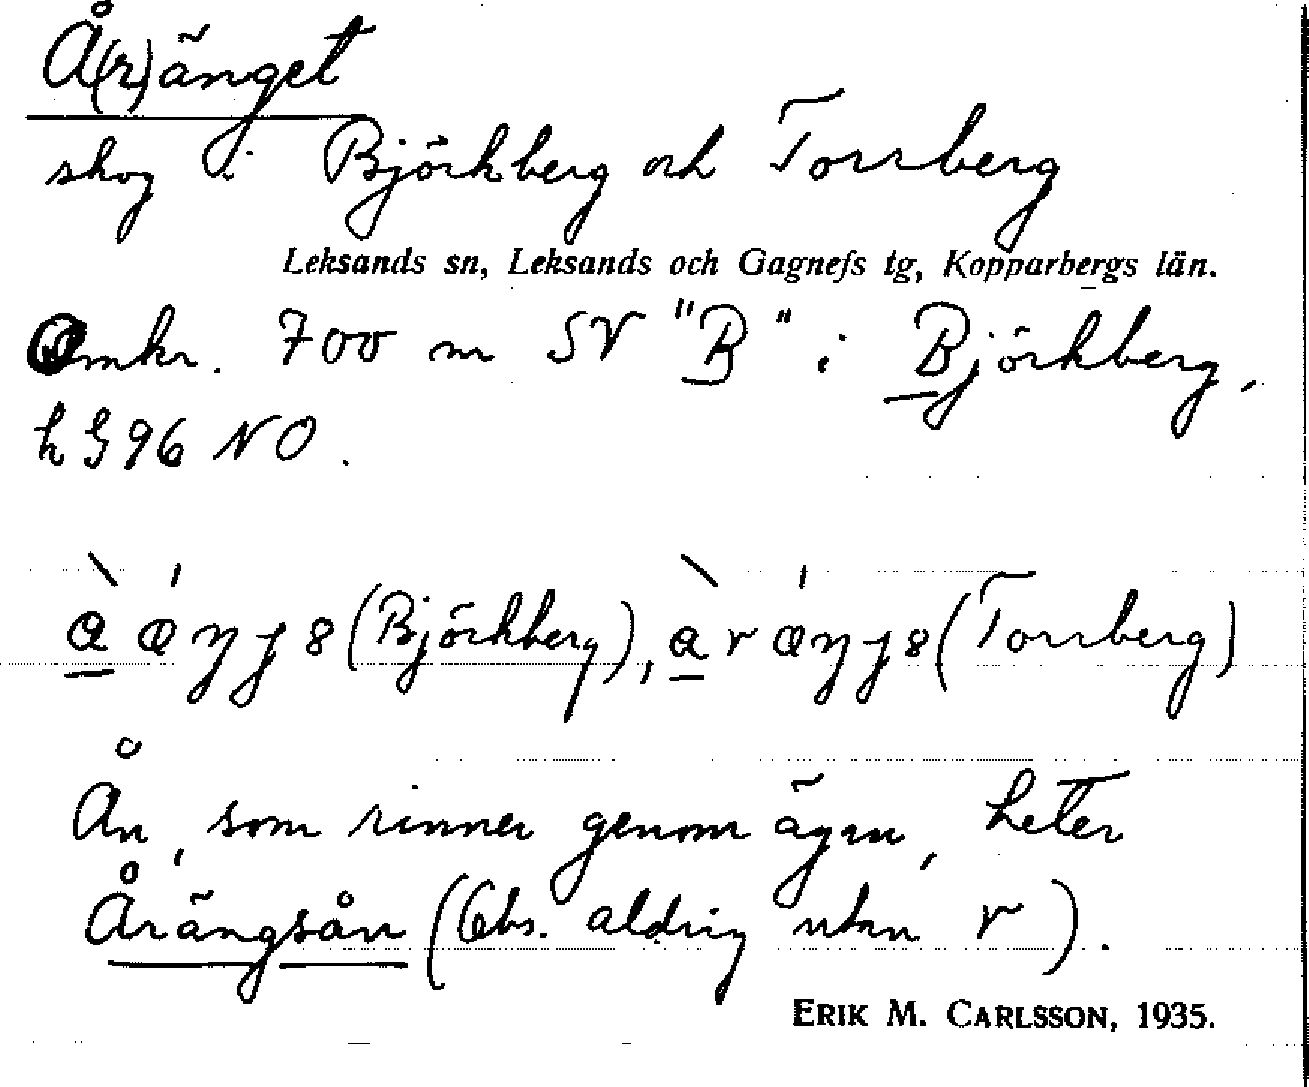 Å(r)änget
skog i Björkberg och Torrberg
Leksands sn, Leksands och Gagnefs tg, Kopparbergs län.
Omkr. 700 m SV "B" i Björkberg,
k § 96 NO.
(Björkberg), (Torrberg)
Ån, som rinner genom ägan, heter
Årängsån (Obs. aldrig utan r).
ERIK M. CARLSSON, 1935.